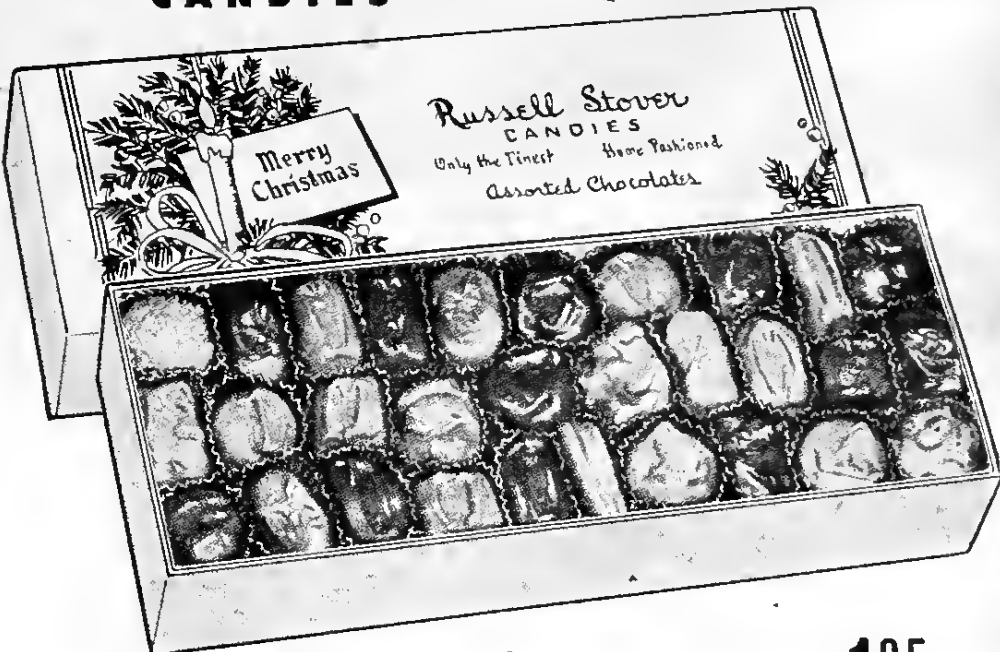 CANDIES
Merry
Christmas
Russell Stover
CANDIES
Only the Finest Home Fashioned
Assorted Chocolates